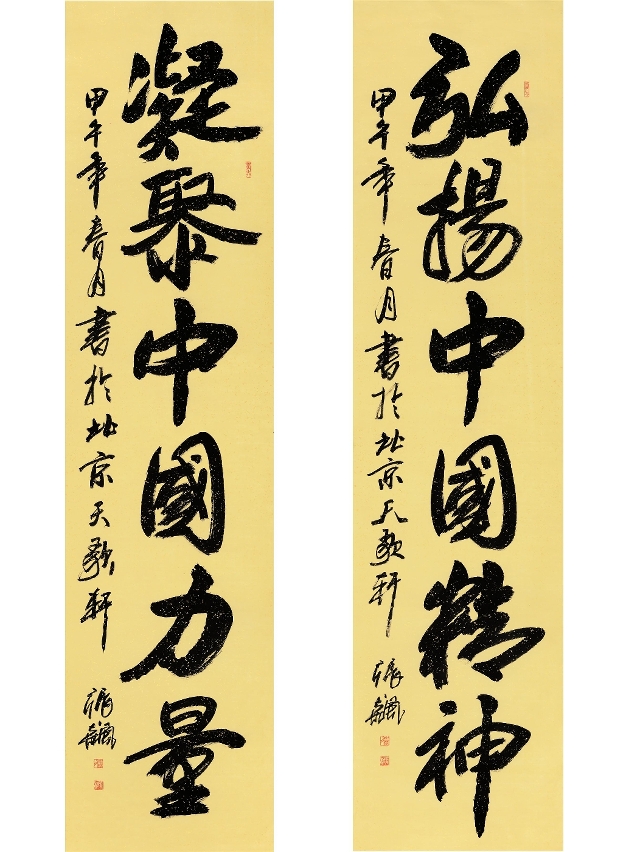 弘揚中國精神
甲午年春月書於北京天歌軒 張飆
凝聚中國力量
甲午年春月書於北京天歌軒 張飆